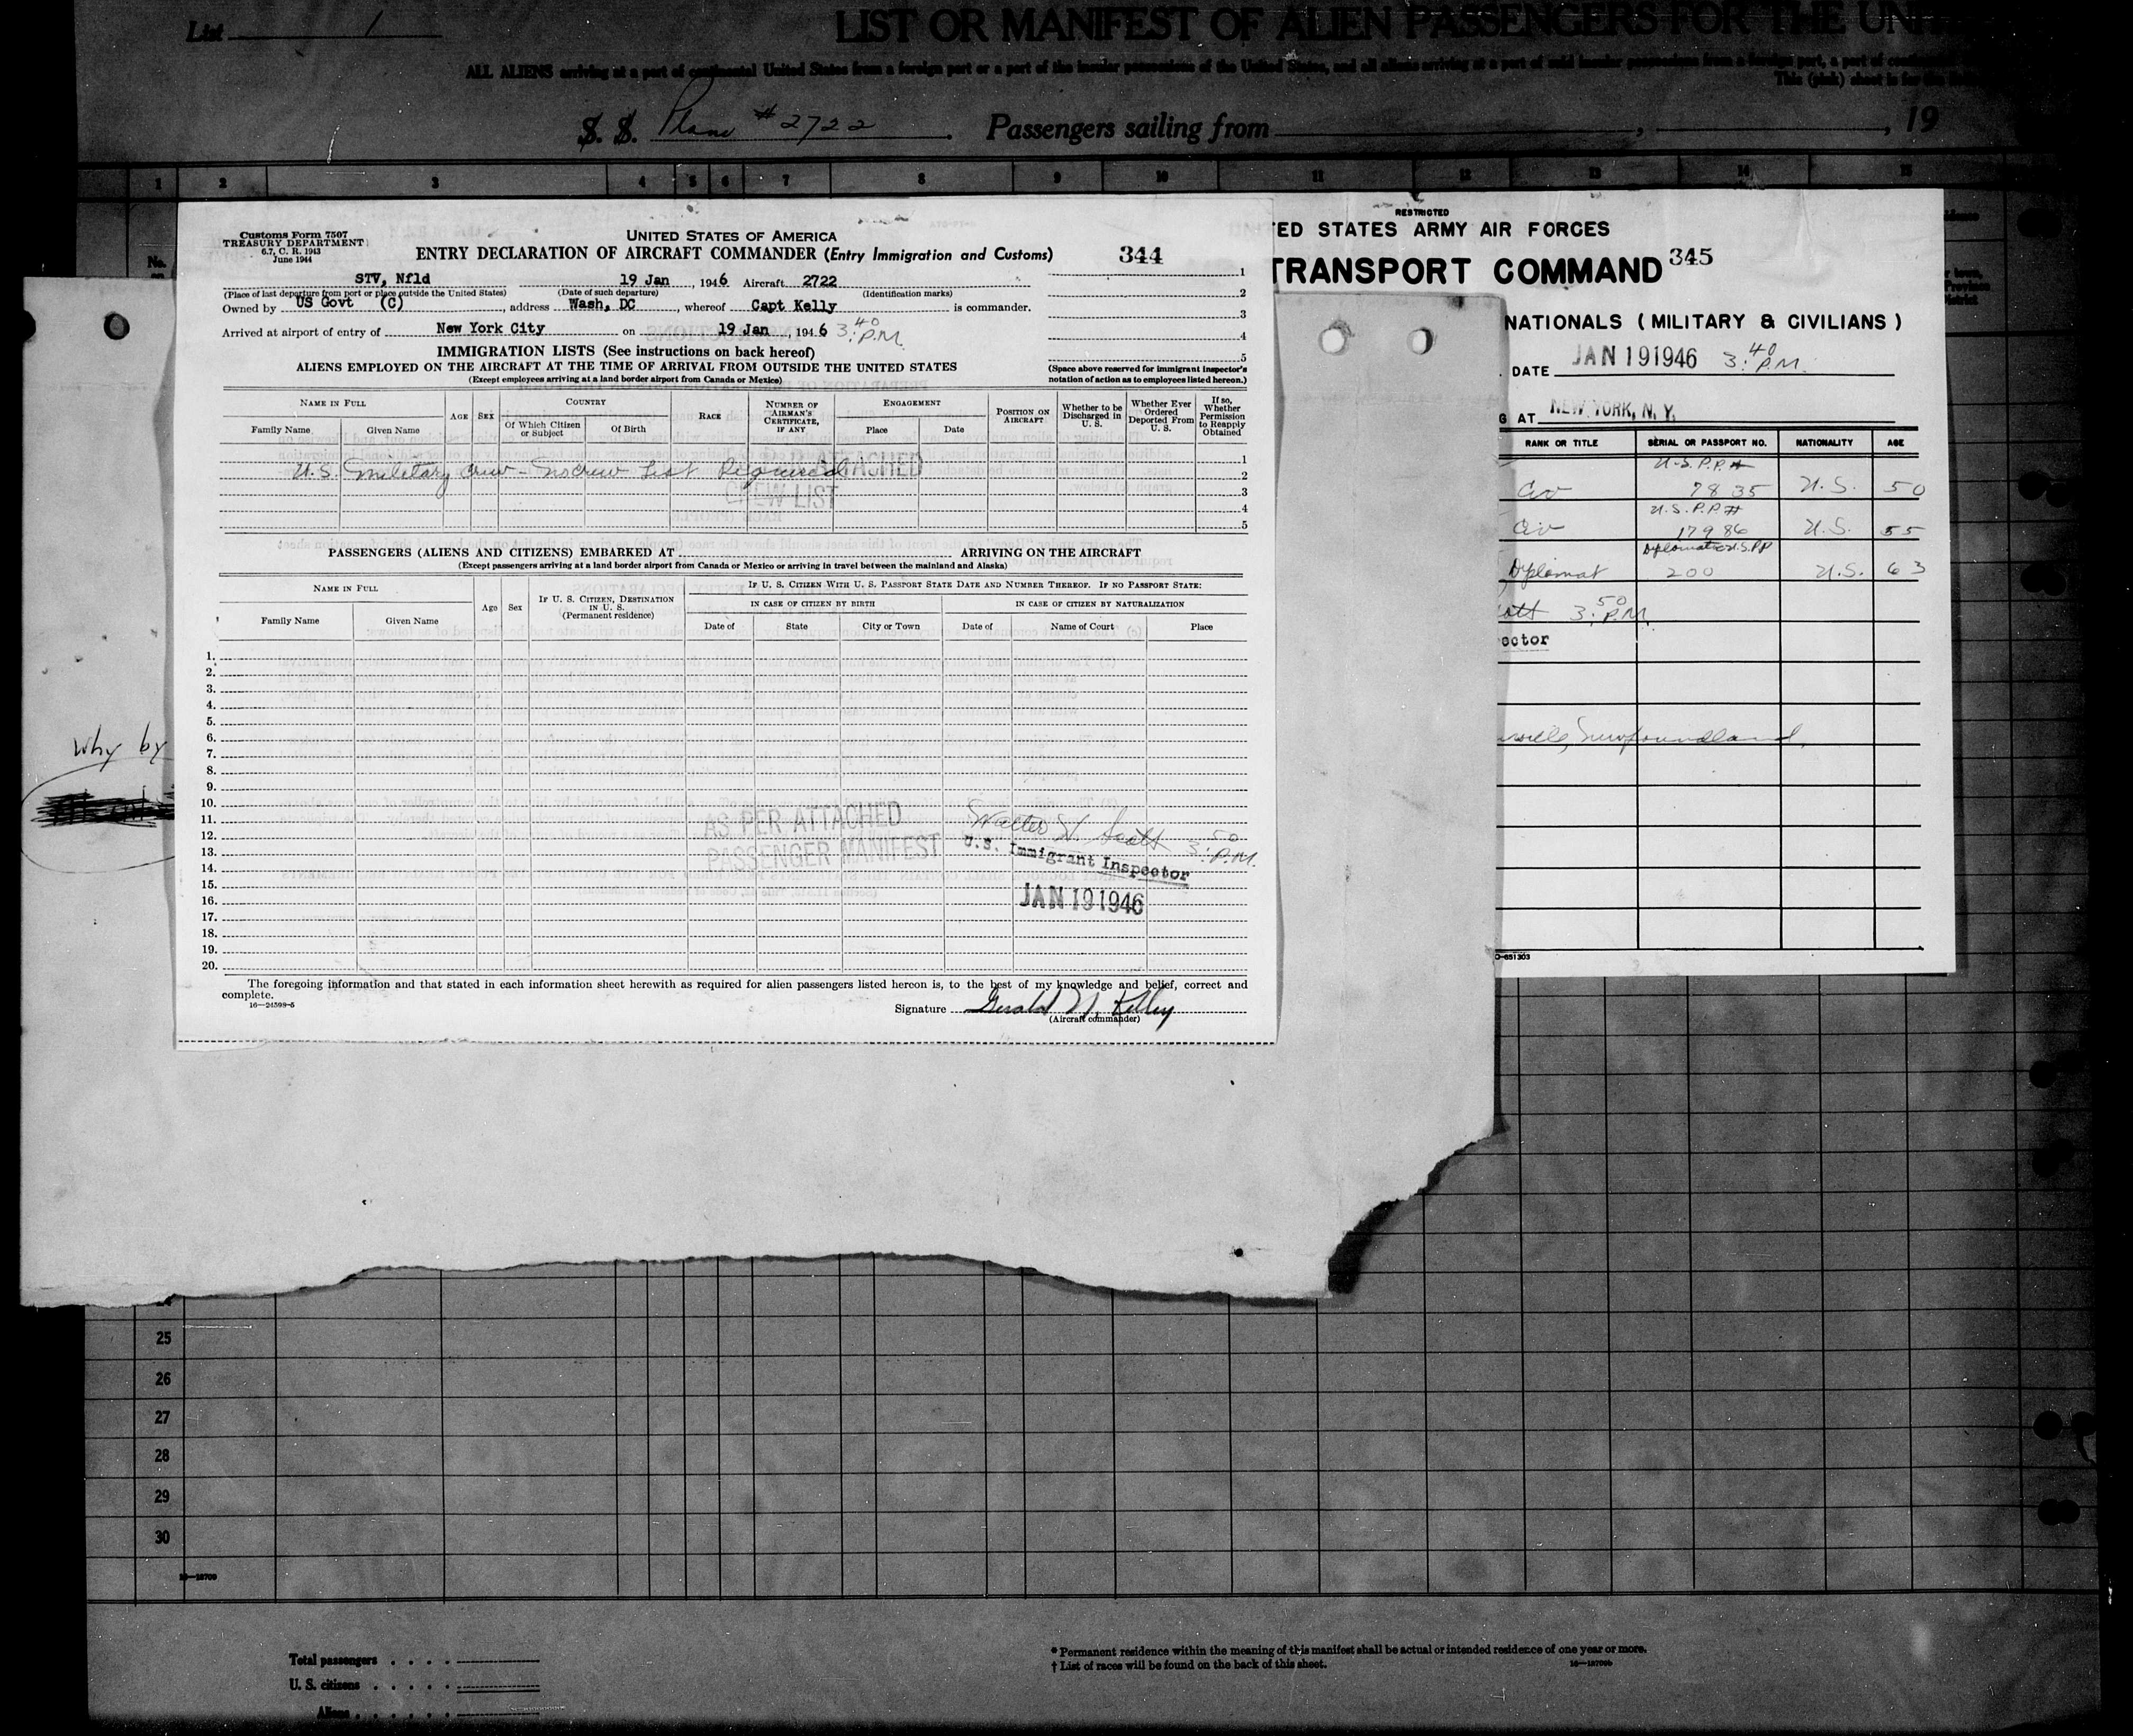 List 1
LIST OR MANIFEST OF ALIEN PASSENGERS FOR THE
ALL ALIENS arriving at a port of continental United States from a foreign port or a port of the insular possessions of the United States, and all aliens arriving at a port of said insular possessions from a foreign port, a port of
This (pink) sheet is for the
S. S. Plane #2722 Passengers sailing from , , 19
1 2 3 4 5 6 7 8 9 10 11 12 13 14 15
No.
Customs Form 7507
TREASURY DEPARTMENT
6.7, C. R. 1943
June 1944
UNITED STATES OF AMERICA
ENTRY DECLARATION OF AIRCRAFT COMMANDER (Entry Immigration and Customs)
344
STV, Nfld 19 Jan , 1946 Aircraft 2722
(Place of last departure from port or place outside the United States) (Date of such departure) (Identification marks)
Owned by US Govt (C) , address Wash, DC , whereof Capt Kelly is commander.
Arrived at airport of entry of New York City on 19 Jan , 1946 3:40 P.M.
1
2
3
4
5
IMMIGRATION LISTS (See instructions on back hereof)
ALIENS EMPLOYED ON THE AIRCRAFT AT THE TIME OF ARRIVAL FROM OUTSIDE THE UNITED STATES
(Except employees arriving at a land border airport from Canada or Mexico)
(Space above reserved for immigrant inspector's
notation of action as to employees listed hereon.)
NAME IN FULL
Family Name Given Name
AGE SEX
COUNTRY
Of Which Citizen or Subject Of Birth
RACE
NUMBER OF AIRMAN'S CERTIFICATE, IF ANY
ENGAGEMENT
Place Date
POSITION ON AIRCRAFT
Whether to be Discharged in U. S.
Whether Ever Ordered Deported From U. S.
If so, Whether Permission to Reapply Obtained
U.S. Military Crew - No crew List Required
ATTACHED
CREW LIST
1
2
3
4
5
PASSENGERS (ALIENS AND CITIZENS) EMBARKED AT ARRIVING ON THE AIRCRAFT
(Except passengers arriving at a land border airport from Canada or Mexico or arriving in travel between the mainland and Alaska)
NAME IN FULL
Family Name Given Name
Age Sex
IF U. S. CITIZEN, DESTINATION IN U. S. (Permanent residence)
IF U. S. CITIZEN WITH U. S. PASSPORT STATE DATE AND NUMBER THEREOF. IF NO PASSPORT STATE:
IN CASE OF CITIZEN BY BIRTH IN CASE OF CITIZEN BY NATURALIZATION
Date of State City or Town Date of Name of Court Place
1.
2.
3.
4.
5.
6.
7.
8.
9.
10.
11.
12.
13.
14.
15.
16.
17.
18.
19.
20.
AS PER ATTACHED
PASSENGER MANIFEST
Walter H. Scott 3:50 P.M.
U.S. Immigrant Inspector
JAN 19 1946
The foregoing information and that stated in each information sheet herewith as required for alien passengers listed hereon is, to the best of my knowledge and belief, correct and
complete.
16—24598-5
Signature Gerald N. Kelley
(Aircraft commander)
why by
RESTRICTED
ED STATES ARMY AIR FORCES
TRANSPORT COMMAND 345
NATIONALS (MILITARY & CIVILIANS)
DATE JAN 19 1946 3:40 P.M.
G AT NEW YORK, N. Y.
RANK OR TITLE SERIAL OR PASSPORT NO. NATIONALITY AGE
Civ U.S.P.P.# 7835 U.S. 50
Civ U.S.P.P.# 17986 U.S. 55
Diplomat Diplomatic U.S.PP 200 U.S. 63
ott 3:50 P.M.
ector
ville, Newfoundland.
O-651303
25
26
27
28
29
30
16—18709
Total passengers . . . .
U. S. citizens . . . . .
Aliens . . . . . .
* Permanent residence within the meaning of this manifest shall be actual or intended residence of one year or more.
† List of races will be found on the back of this sheet.